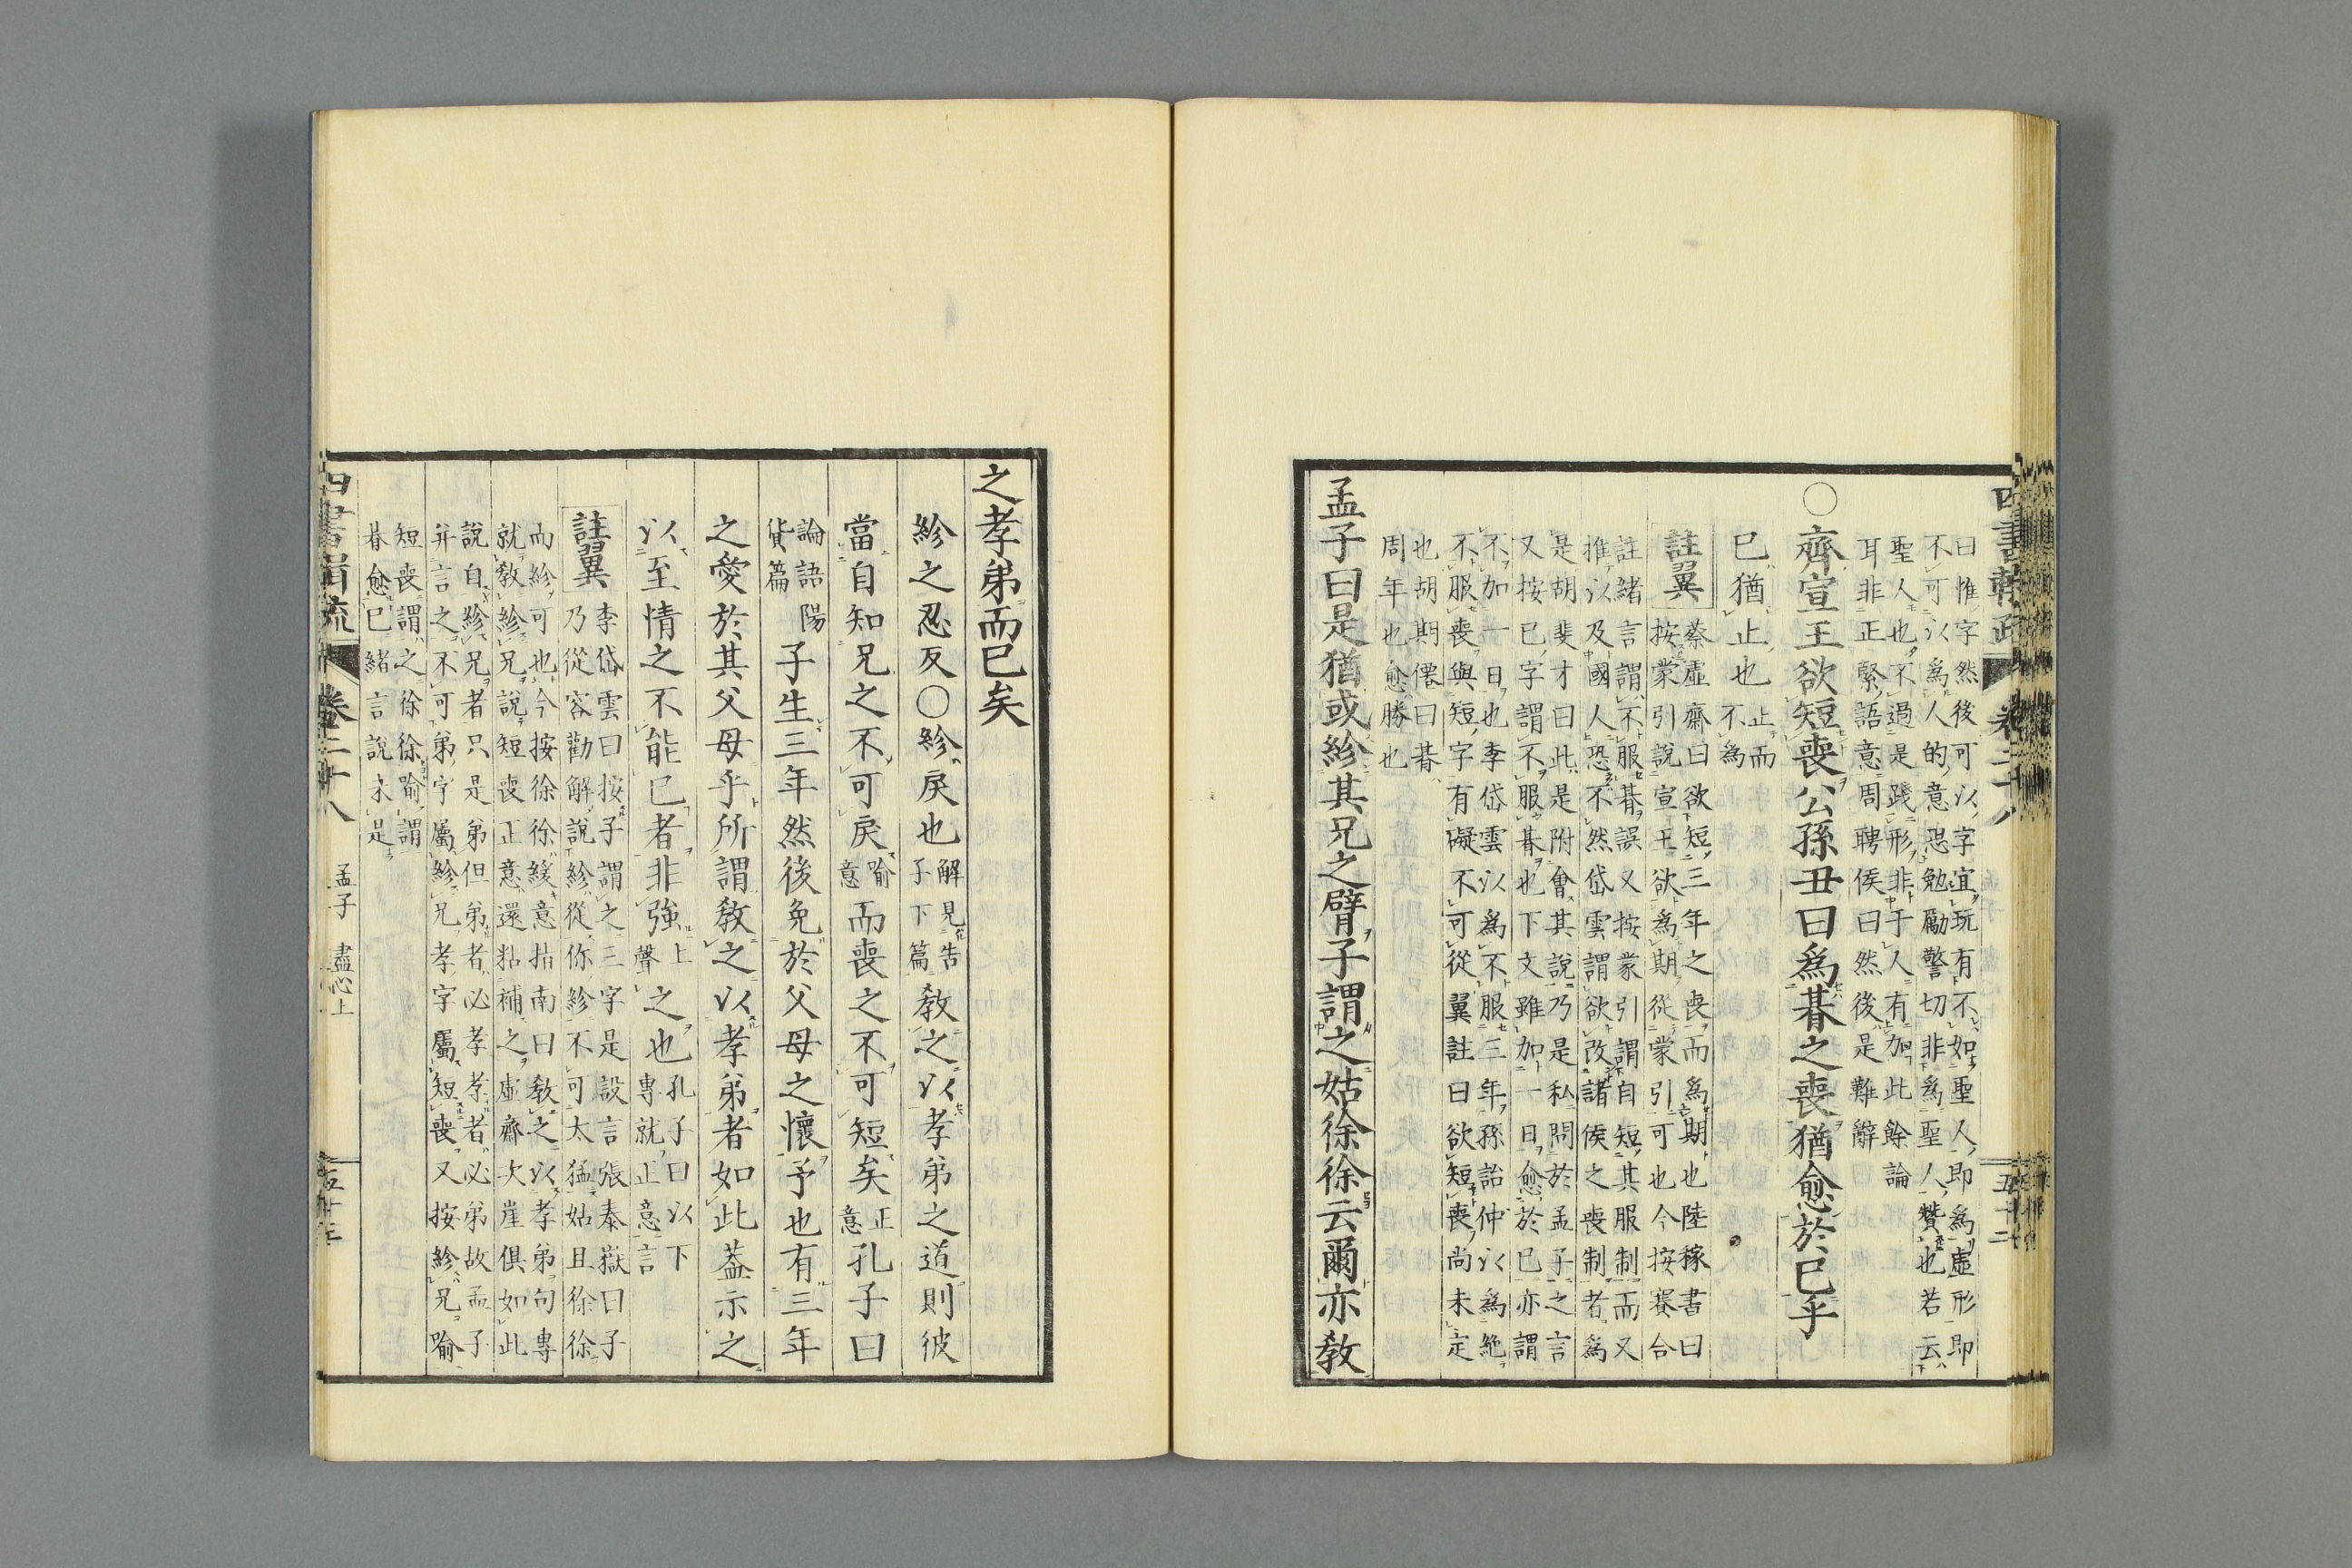 曰惟字然後可以字宜玩有不如聖人即爲虛形即
不可以爲人的意恐勉勵警切非爲聖人贊也若云
聖人也不過是踐形非于人有加此餘論
耳非正緊語意周聘侯曰然後是難辭
○齊宣王欲短喪公孫丑曰爲朞之喪猶愈於已乎
已猶止也止而
不爲
註翼
蔡虛齋曰欲短三年之喪而爲期也陸稼書曰
按蒙引說宣王欲爲期從蒙引可也今按賽合
註緒言謂不服朞誤又按蒙引謂自短其服制而又
推以及國人恐不然岱雲謂欲改諸侯之喪制者爲
是胡斐才曰此是附會其說乃是私問於孟子之言
又按已字謂不服朞也下文雖加一日愈於已亦謂
不加一日也李岱雲以爲不服三年孫詒仲以爲絶
不服喪與短字有礙不可從翼註曰欲短喪尚未定
也胡期僊曰朞
周年也愈勝也
孟子曰是猶或紾其兄之臂子謂之姑徐徐云爾亦敎
之孝弟而已矣
紾之忍反○紾戾也解見告
子下篇
敎之以孝弟之道則彼
當自知兄之不可戾喻
意
而喪之不可短矣正
意
孔子曰
論語陽
貨篇
子生三年然後免於父母之懷予也有三年
之愛於其父母乎所謂敎之以孝弟者如此葢示之
以至情之不能已者非強上
聲
之也孔子曰以下
專就正意言
註翼
李岱雲曰按子謂之三字是設言張泰嶽曰子
乃從容勸解說紾從你紾不可太猛姑且徐徐
而紾可也今按徐徐緩意指南曰敎之以孝弟句專
就敎紾兄說短喪正意還粘補之虛齋次崖俱如此
說自紾兄者只是弟但弟者必孝孝者必弟故孟子
幷言之不可弟字屬紾兄孝字屬短喪又按紾兄喻
短喪謂之徐徐喻謂
朞愈已緒言說未是
四書
卷二十八
孟子
盡心上